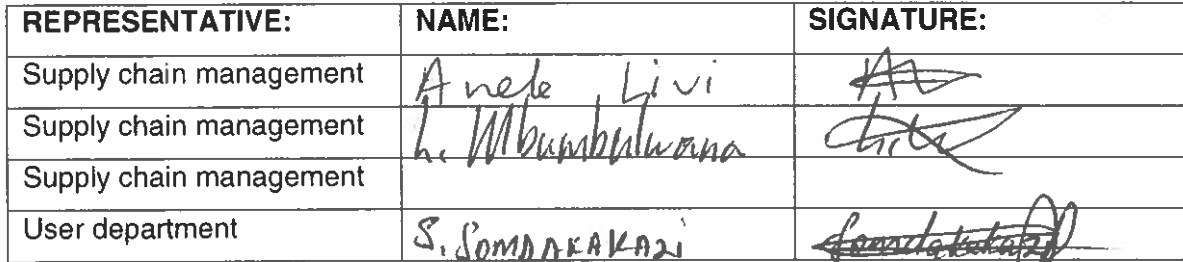 REPRESENTATIVE: NAME: SIGNATURE:
Supply chain management Anele Livi
Supply chain management L. Mbumbulwana
Supply chain management
User department S. SOMDAKAKAZI